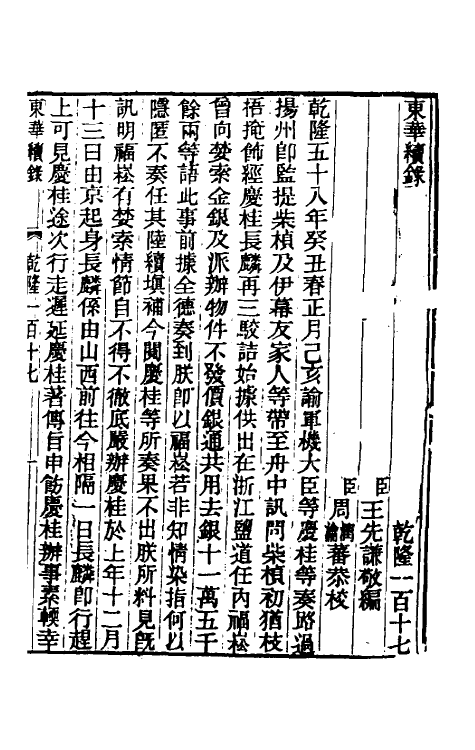 東華續錄
乾隆一百十七
臣王先謙敬編
臣周潤蕃周瀹蕃恭校
乾隆五十八年癸丑春正月己亥諭軍機大臣等慶桂等奏路過
揚州卽監提柴楨及伊幕友家人等帶至舟中訊問柴楨初猶枝
梧掩飾經慶桂長麟再三駮詰始據供出在浙江鹽道任內福崧
曾向婪索金銀及派辦物件不發價銀通共用去銀十一萬五千
餘兩等語此事前據全德奏到朕卽以福崧若非知情染指何以
隱匿不奏任其陸續塡補今閱慶桂等所奏果不出朕所料見旣
訊明福崧有婪索情節自不得不徹底嚴辦慶桂於上年十二月
十三日由京起身長麟係由山西前往今相隔一日長麟卽行趕
上可見慶桂途次行走遲延慶桂著傳旨申飭慶桂辦事素輭幸
東華續錄
乾隆一百十七
一